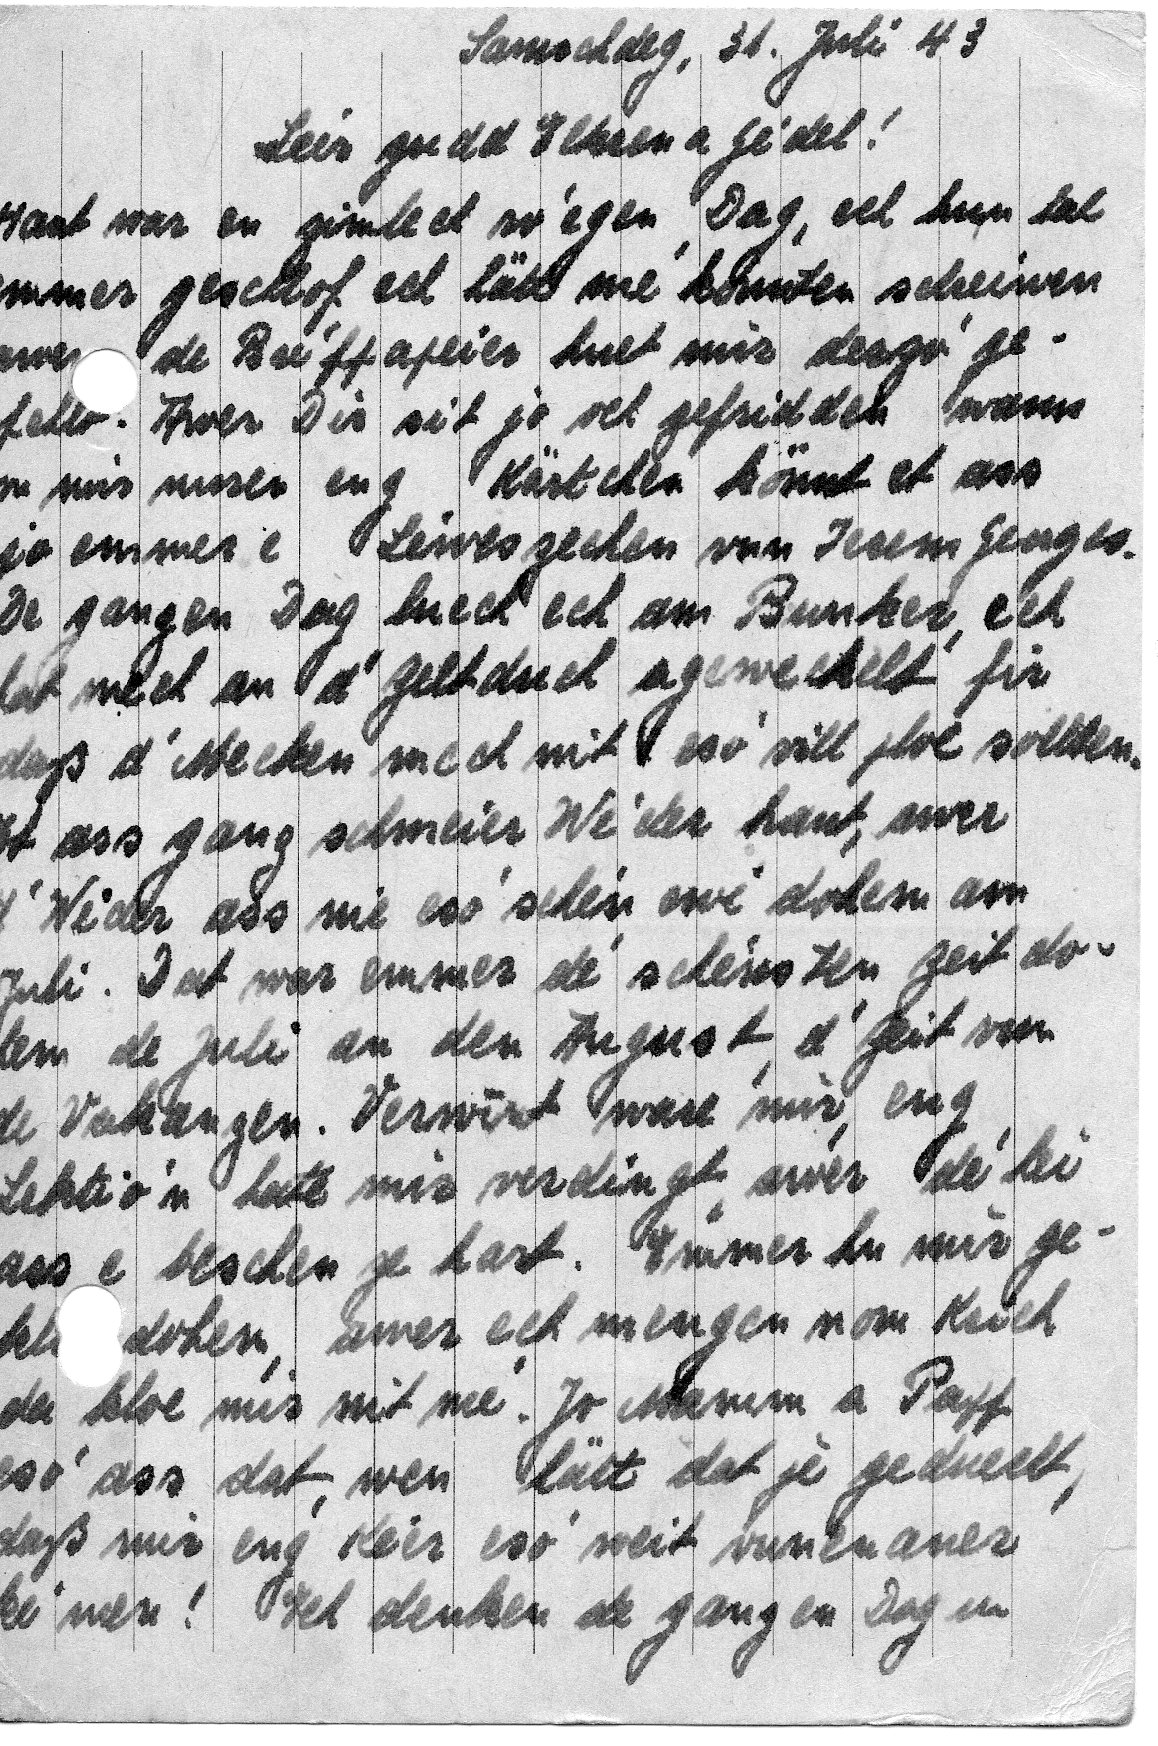 Samschdeg, 31. Juli 43
Leiw gudd Elteren a Gédel!
Haut war en zimlech ro'egen Dag, ech hun bal
emmer geschlof ech hätt mé konnten schreiwen
awer de Bréffapeier huet mir dergo' ge-
fehlt. Awer Dir sit jo och gefridden wann
mir nuren eng Kärtchen könnt et ass
jo emmer e Liewenszechen vun Ierem Georges.
De ganzen Dag huech ech am Bunker, ech
hat mech an d'Zeltduch agewechelt fir
daß d'Mecken mech nit eso' vill ploe sollten.
Et ass ganz schweier Wieder haut, awer
d'Wieder ass nie eso' schéin ewé dohem am
Juli. Dat war emmer dé schéinsten Zeit do-
hem de Juli an den August, d'Zeit vun
de Vakanzen. Verwinnt ware mir, eng
Lektio'n hate mir verdingt, awer dé hei
ass e beschen ze hart. Emmer hu mir ge-
klot dohem, awer ech mengen nom Krich
da kloe mir nit mé. Jo Mamm a Papp
eso' ass dat, wen hätt dat je geduecht,
daß mir eng Kéier eso' weit vunenaner
kémen! Ech denken de ganzen Dag un